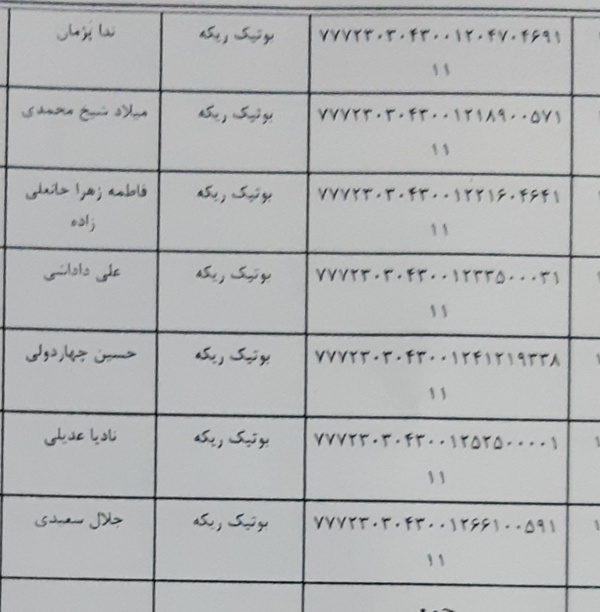 ۷۷۷۲۳۰۳۰۴۳۰۰۱۲۰۴۷۰۴۶۹۱ بوتیک ریکه ندا پژمان
۱۱
۷۷۷۲۳۰۳۰۴۳۰۰۱۲۱۸۹۰۰۵۷۱ بوتیک ریکه میلاد شیخ محمدی
۱۱
۷۷۷۲۳۰۳۰۴۳۰۰۱۲۲۱۶۰۴۶۴۱ بوتیک ریکه فاطمه زهرا خانعلی
۱۱ زاده
۷۷۷۲۳۰۳۰۴۳۰۰۱۲۳۳۵۰۰۰۳۱ بوتیک ریکه علی داداشی
۱۱
۷۷۷۲۳۰۳۰۴۳۰۰۱۲۴۱۲۱۹۳۳۸ بوتیک ریکه حسین چهاردولی
۱۱
۷۷۷۲۳۰۳۰۴۳۰۰۱۲۵۲۵۰۰۰۰۱ بوتیک ریکه نادیا عدیلی
۱۱
۷۷۷۲۳۰۳۰۴۳۰۰۱۲۶۶۱۰۰۵۹۱ بوتیک ریکه جلال سعیدی
۱۱